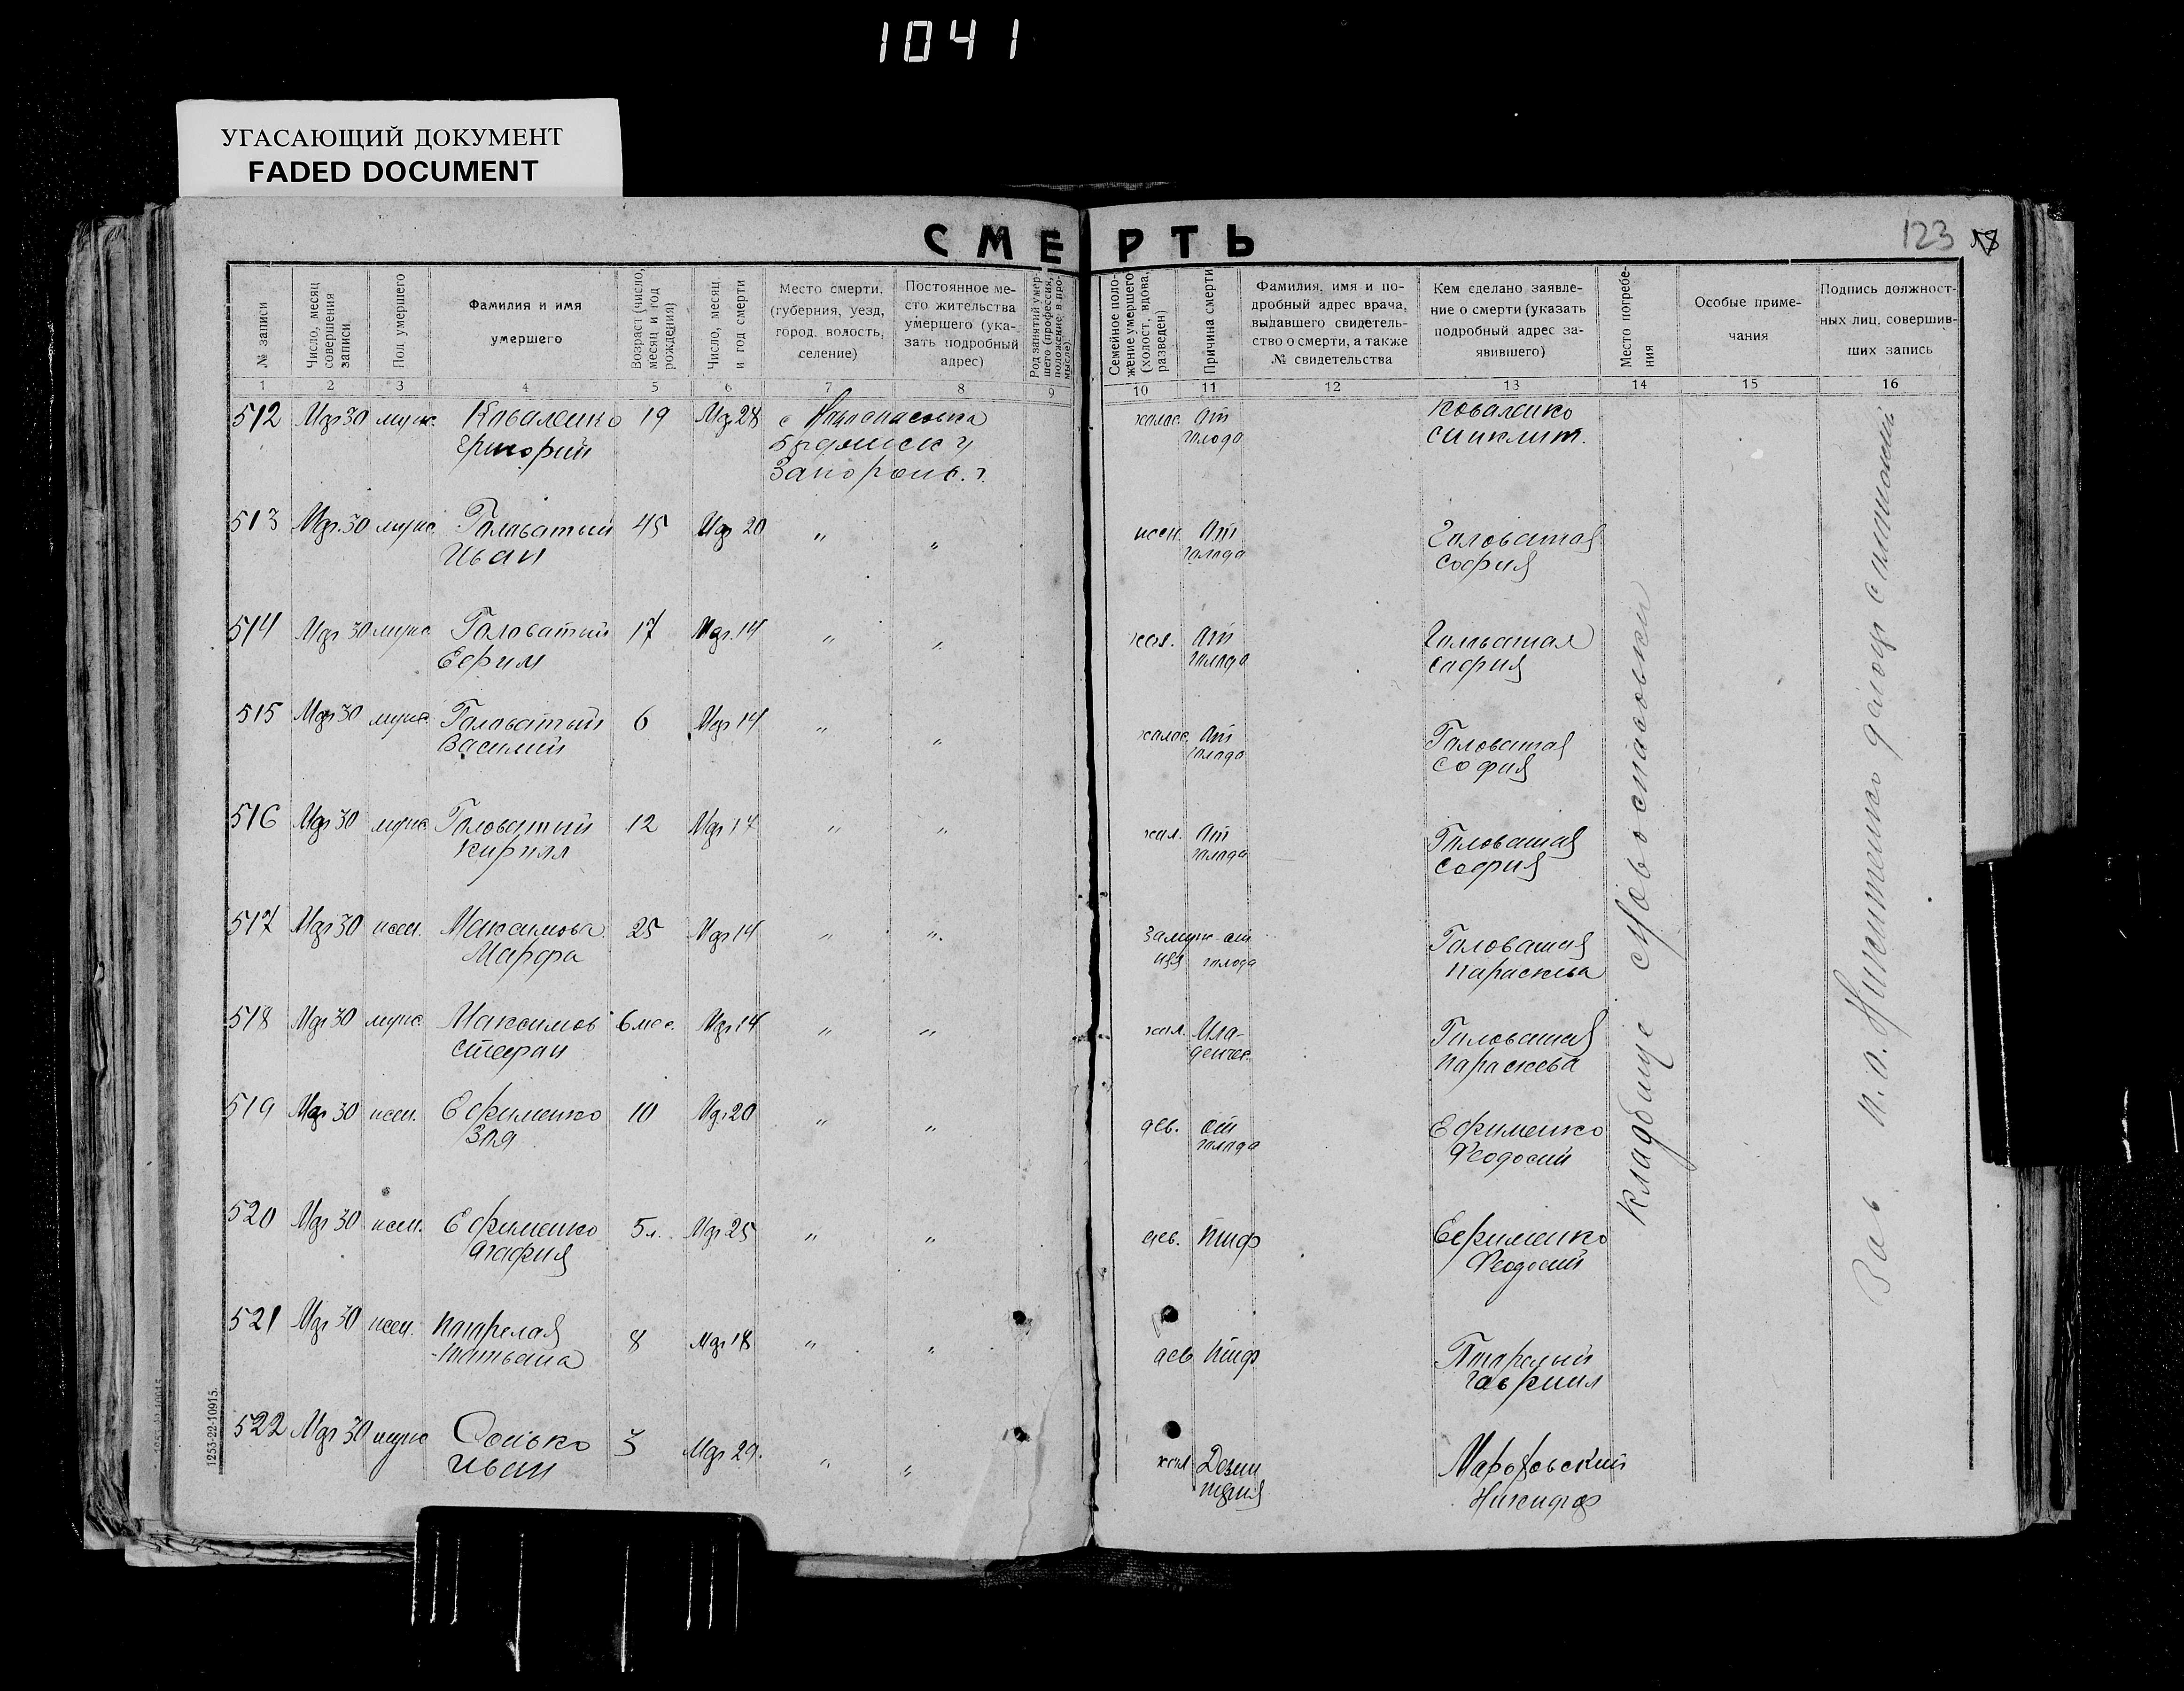 1041
УГАСАЮЩИЙ ДОКУМЕНТ
FADED DOCUMENT
СМЕРТЬ
123
№ записи
Число, месяц совершения записи
Пол умершего
Фамилия и имя умершего
Возраст (число, месяц и год рождения)
Число, месяц и год смерти
Место смерти. (губерния, уезд, город, волость, селение)
Постоянное место жительства умершего (указать подробный адрес)
Род занятий умершего (профессия, положение в промысле)
Семейное положение умершего (холост, вдова, разведен)
Причина смерти
Фамилия, имя и подробный адрес врача, выдавшего свидетельство о смерти, а также № свидетельства
Кем сделано заявление о смерти (указать подробный адрес заявившего)
Место погребения
Особые примечания
Подпись должностных лиц, совершивших запись
1 2 3 4 5 6 7 8 9 10 11 12 13 14 15 16
512 Мар 30 муж. Коваленко 19 Мар 28 с. холос. От Коваленко
Григорий голода
Запорож. г.
513 Мар. 30 муж. Головатый 45 Мар 20 " " жен. От Головатая
Иван голода София
514 Мар 30 муж. Головатый 17 Мар. 14 " " хол. От Головатая
Ефим голода София
515 Мар 30 муж. Головатый 6 Мар 14 " " холос. От Головатая
Василий голода София
516 Мар 30 муж. Головатый 12 Мар 14 " " хол. От Головатая
Кирилл голода София
517 Мар 30 жен. Максимова 25 Мар 14 " " замуж- от Головатая
Марфа няя голода Параскева
518 Мар 30 муж. Максимов 6 мес. Мар 14 " " хол. Мла- Головатая
Стефан денчес. Параскева
519 Мар 30 жен. Ефименко 10 Мар 20 " " дев. от Ефименко
Зоя голода Феодосий
520 Мар 30 жен. Ефименко 5 л. Мар 25 " " дев. тиф Ефименко
Агафия Феодосий
521 Мар 30 жен. 8 Мар 18 " " дев тиф
Татьяна Гавриил
522 Мар 30 муж 3 Мар 29. " " хол Дезин
Иван терия Никифор
Кладбище с Новоспасовки
Зав п. о.
1253-22-10915.